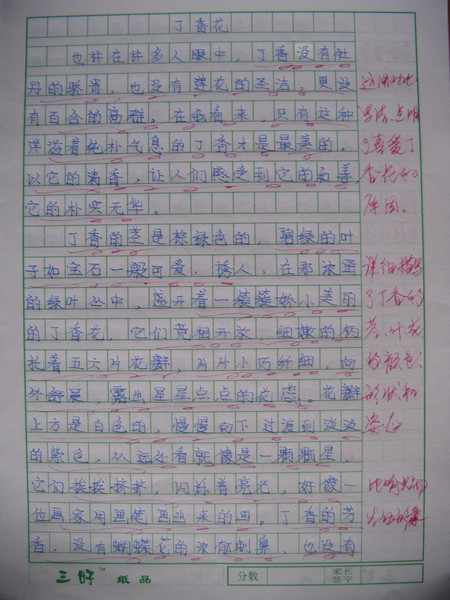 丁香花
也许在许多人眼中，丁香没有牡
丹的娇贵，也没有莲花的圣洁，更没
有百合的高雅。在我看来，只有这种
洋溢着纯朴气息的丁香才是最美的。
以它的清香，让人们感受到它的
它的朴实无华。
丁香的茎是棕绿色的，碧绿的叶
子如宝石一般可爱，诱人，在那浓密
的绿叶丛中，盛开着一簇簇娇小美丽
的丁香花，它们竞相开放，细嫩的
托着五六片花瓣，片片小巧纤细，向
外舒展，露出星星点点的花蕊。花瓣
上方是白色的，慢慢向下过渡到淡淡
的紫色，从远处看就像是一颗颗星，
它们挨挨挤挤，闪烁着亮光，好像一
位画家用画笔画出来的画。丁香的芳
香，没有蝴蝶花的浓郁刺鼻，也没有
运用对比
写法，点明
了喜爱丁
香花的
原因。
详细描写
了丁香的
茎、叶、花
的颜色、
形状和
姿态
三好 纸品
分数
家长
签字